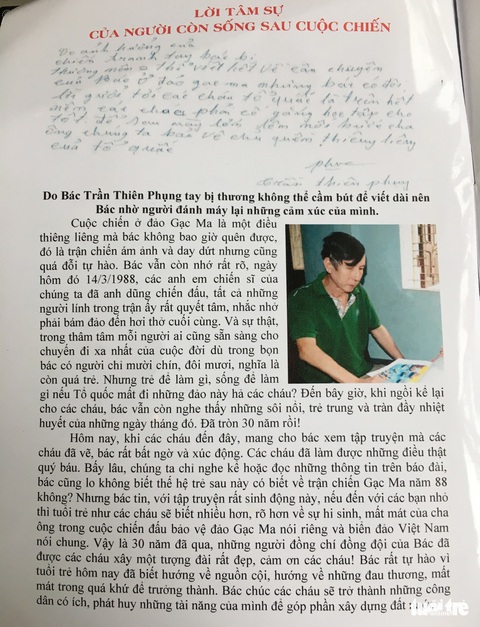 LỜI TÂM SỰ
CỦA NGƯỜI CÒN SỐNG SAU CUỘC CHIẾN
Do anh hưởng của
chiến tranh tay bác bị
thương nên o thể viết hết về câu chuyện
của Bác ở đảo gac ma nhưng bác có đôi
lời gưởi tới các cháu tổ quốc là trên hết
mong các cháu phải cố gắng học tập cho
tốt để sau này lớn lên nối bước cha
ông chúng ta bảo vệ chủ quyền thiêng liêng
của tổ quốc
phung
trần thiên phung
Do Bác Trần Thiên Phụng tay bị thương không thể cầm bút để viết dài nên
Bác nhờ người đánh máy lại những cảm xúc của mình.
Cuộc chiến ở đảo Gạc Ma là một điều
thiêng liêng mà bác không bao giờ quên được,
đó là trận chiến ám ảnh và day dứt nhưng cũng
quá đỗi tự hào. Bác vẫn còn nhớ rất rõ, ngày
hôm đó 14/3/1988, các anh em chiến sĩ của
chúng ta đã anh dũng chiến đấu, tất cả những
người lính trong trận ấy rất quyết tâm, nhắc nhở
phải bám đảo đến hơi thở cuối cùng. Và sự thật,
trong thâm tâm mỗi người ai cũng sẵn sàng cho
chuyến đi xa nhất của cuộc đời dù trong bọn
bác có người chỉ mười chín, đôi mươi, nghĩa là
còn quá trẻ. Nhưng trẻ để làm gì, sống để làm
gì nếu Tổ quốc mất đi những đảo này hả các cháu? Đến bây giờ, khi ngồi kể lại
cho các cháu, bác vẫn còn nghe thấy những sôi nổi, trẻ trung và tràn đầy nhiệt
huyết của những ngày tháng đó. Đã tròn 30 năm rồi!
Hôm nay, khi các cháu đến đây, mang cho bác xem tập truyện mà các
cháu đã vẽ, bác rất bất ngờ và xúc động. Các cháu đã làm được những điều thật
quý báu. Bấy lâu, chúng ta chỉ nghe kể hoặc đọc những thông tin trên báo đài,
bác cũng lo không biết thế hệ trẻ sau này có biết về trận chiến Gạc Ma năm 88
không? Nhưng bác tin, với tập truyện rất sinh động này, nếu đến với các bạn nhỏ
thì tuổi trẻ như các cháu sẽ biết nhiều hơn, rõ hơn về sự hi sinh, mất mát của cha
ông trong cuộc chiến đấu bảo vệ đảo Gạc Ma nói riêng và biển đảo Việt Nam
nói chung. Vậy là 30 năm đã qua, những người đồng chí đồng đội của Bác đã
được các cháu xây một tượng đài rất đẹp, cảm ơn các cháu! Bác rất tự hào vì
tuổi trẻ hôm nay đã biết hướng về nguồn cội, hướng về những đau thương, mất
mát trong quá khứ để trưởng thành. Bác chúc các cháu sẽ trở thành những công
dân có ích, phát huy những tài năng của mình để góp phần xây dựng đất
tuổi trẻ